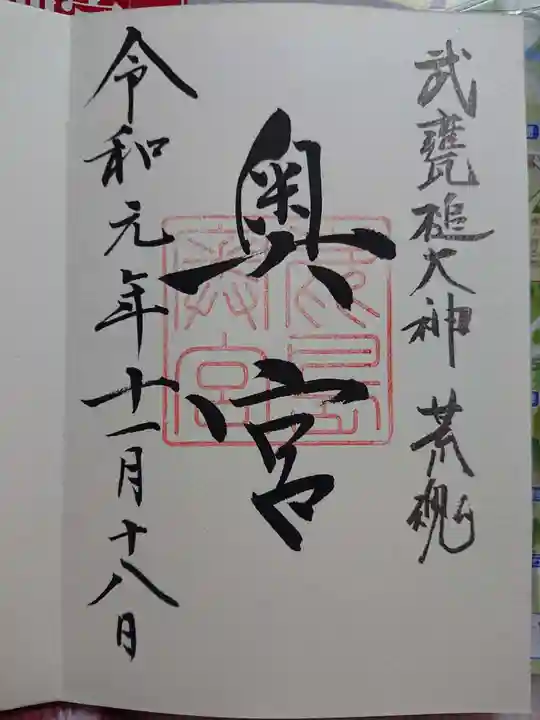 武甕槌大神 荒魂
奥宮
鹿島奥宮
令和元年十一月十八日